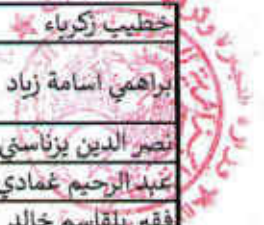 خطيب زكرياء
براهمي اسامة زياد
نصر الدين يزناسني
عبد الرحيم غمادي
فقير بلقاسم خالد